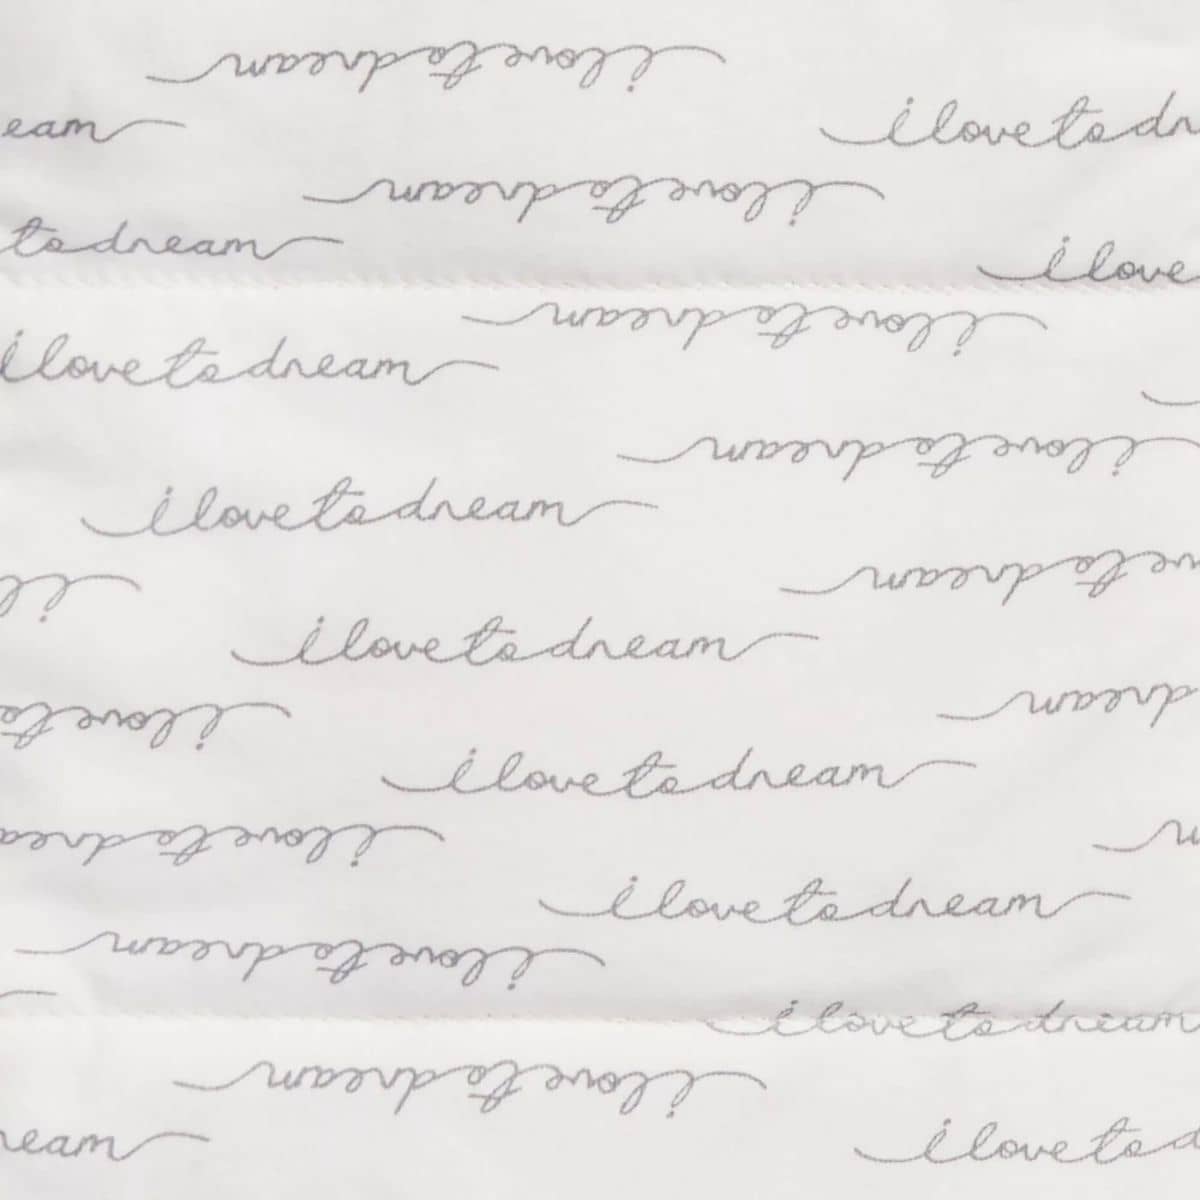 i love to dream
eam
i love to dr
i love to dream
to dream
i love
i love to dream
i love to dream
i love to dream
i love to dream
ve to dream
i l
i love to dream
dream
i love to
i love to dream
i love to drea
m
i love to dream
i love to dream
i love to dream
i love to dream
ream
i love to d